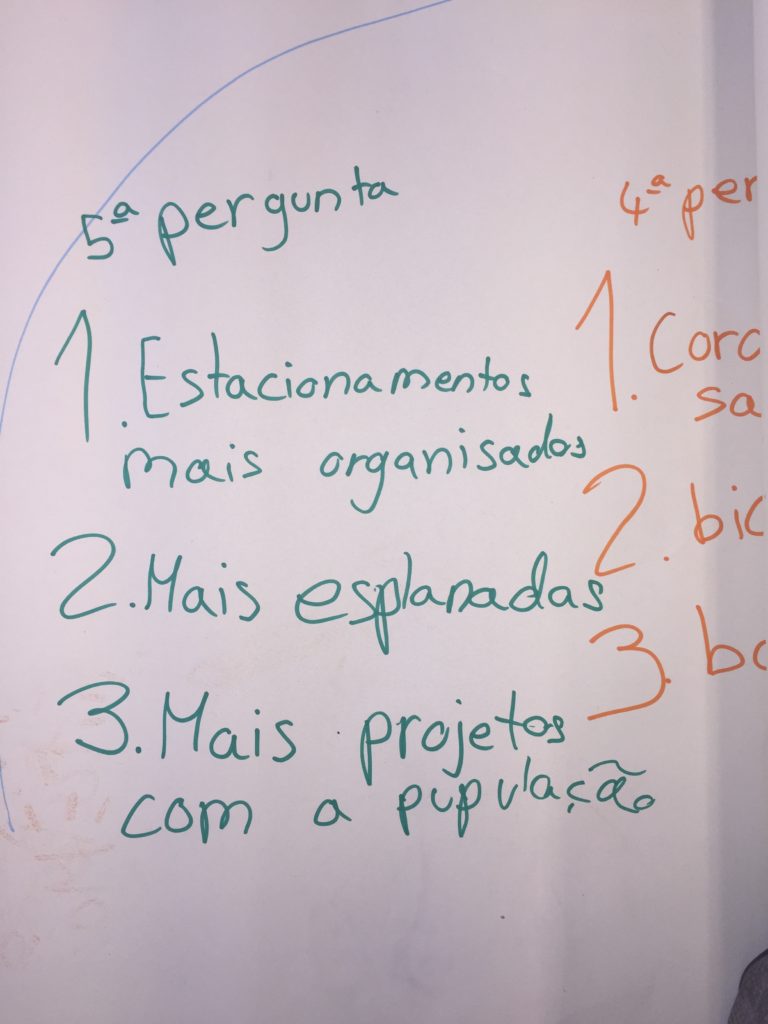 5ª pergunta
1. Estacionamentos
mais organisados
2. Mais esplanadas
3. Mais projetos
com a pupulação
4ª per
1. Corc
sa
2. bic
3. bc